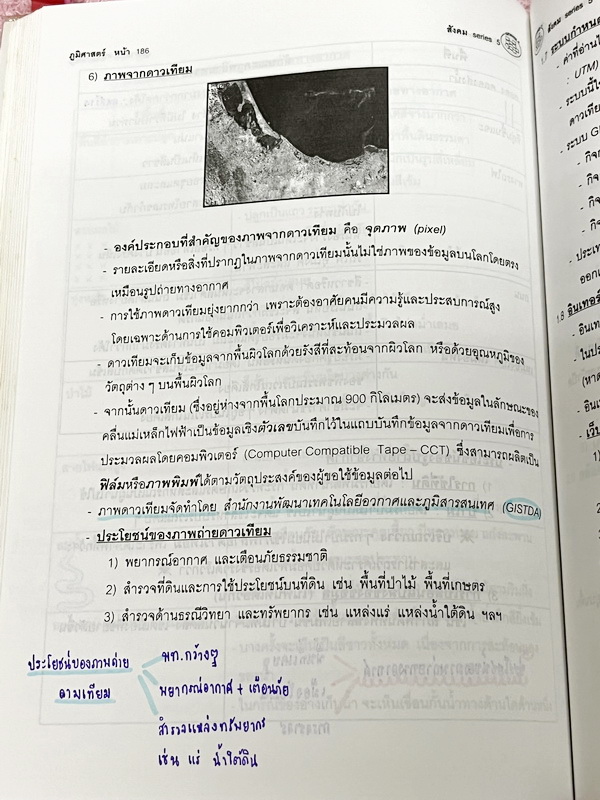 ภูมิศาสตร์ หน้า 186
สังคม series 5
6) ภาพจากดาวเทียม
- องค์ประกอบที่สำคัญของภาพจากดาวเทียม คือ จุดภาพ (pixel)
- รายละเอียดหรือสิ่งที่ปรากฏในภาพจากดาวเทียมนั้นไม่ใช่ภาพของข้อมูลบนโลกโดยตรง
เหมือนรูปถ่ายทางอากาศ
- การใช้ภาพดาวเทียมยุ่งยากกว่า เพราะต้องอาศัยคนมีความรู้และประสบการณ์สูง
โดยเฉพาะด้านการใช้คอมพิวเตอร์เพื่อวิเคราะห์และประมวลผล
- ดาวเทียมจะเก็บข้อมูลจากพื้นผิวโลกด้วยรังสีที่สะท้อนจากผิวโลก หรือด้วยอุณหภูมิของ
วัตถุต่าง ๆ บนพื้นผิวโลก
- จากนั้นดาวเทียม (ซึ่งอยู่ห่างจากพื้นโลกประมาณ 900 กิโลเมตร) จะส่งข้อมูลในลักษณะของ
คลื่นแม่เหล็กไฟฟ้าเป็นข้อมูลเชิงตัวเลขบันทึกไว้ในแถบบันทึกข้อมูลจากดาวเทียมเพื่อการ
ประมวลผลโดยคอมพิวเตอร์ (Computer Compatible Tape – CCT) ซึ่งสามารถผลิตเป็น
ฟิล์มหรือภาพพิมพ์ได้ตามวัตถุประสงค์ของผู้ขอใช้ข้อมูลต่อไป
- ภาพดาวเทียมจัดทำโดย สำนักงานพัฒนาเทคโนโลยีอวกาศและภูมิสารสนเทศ (GISTDA)
- ประโยชน์ของภาพถ่ายดาวเทียม
1) พยากรณ์อากาศ และเตือนภัยธรรมชาติ
2) สำรวจที่ดินและการใช้ประโยชน์บนที่ดิน เช่น พื้นที่ป่าไม้ พื้นที่เกษตร
3) สำรวจด้านธรณีวิทยา และทรัพยากร เช่น แหล่งแร่ แหล่งน้ำใต้ดิน ฯลฯ
ประโยชน์ของภาพถ่าย
ดาวเทียม
พท.กว้างๆ
พยากรณ์อากาศ + เตือนภัย
สำรวจแหล่งทรัพยากร
เช่น แร่ น้ำใต้ดิน
สังคม series 5
1.7 ระบบกำหนด
- ค่าที่อ่านไ
: UTM)
- ระบบนี้ใ
ดาวเทีย
- ระบบ G
- กิจก
- กิ
- กิจ
- กิจ
- ประเท
ออกแ
1.8 อินเทอร์
- อินเท
ในปร
(หาด
- อินเ
- เว็บ
1)
2)